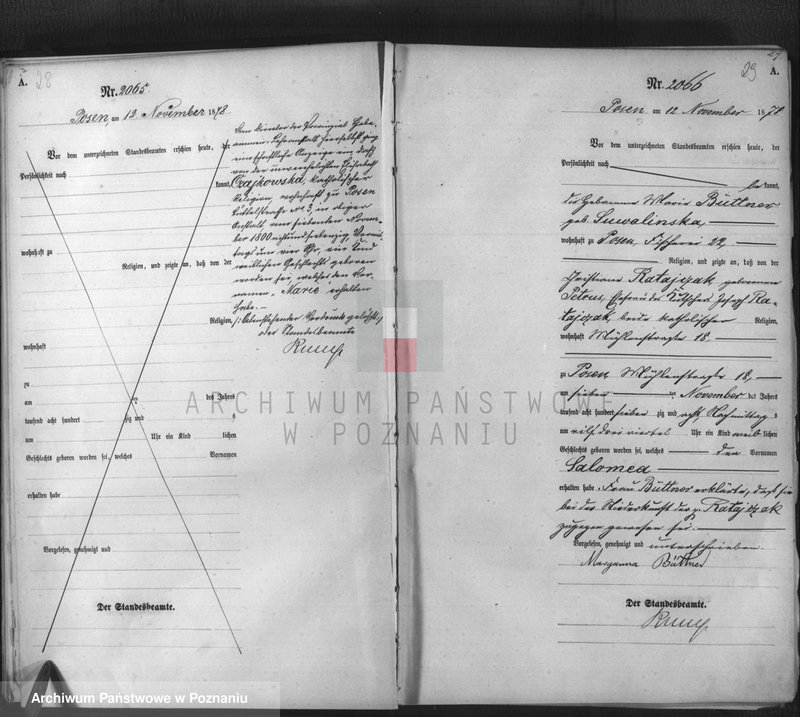 A. 28
Nr. 2065.
Posen, am 12 November 1878.
Vor dem unterzeichneten Standesbeamten erschien heute, der
Persönlichkeit nach
kannt,
wohnhaft zu
Religion, und zeigte an, daß von der
Religion,
wohnhaft
zu
am ten des Jahres
tausend acht hundert zig und
um Uhr ein Kind lichen
Geschlechts geboren worden sei, welches Vornamen
erhalten habe
Vorgelesen, genehmigt und
Der Standesbeamte.
Vom Direktor der Provinzial Heba-
mmen Lehranstalt hierselbst ging
eine schriftliche Anzeige ein, daß
von der unverehelichten
Czajkowska, katholischer
Religion, wohnhaft zu Posen
No 3, in dieser
Anstalt am siebenten Novem-
ber 1800 acht und siebenzig, Vormit-
tags um vier Uhr, ein Kind
weiblichen Geschlechts geboren
worden sei, welches den Vor-
namen „Marie“ erhalten
habe.
Nebenstehender Vordruck gelöscht.
Der Standesbeamte
29
29
A.
Nr. 2066
Posen am 12 November 1878
Vor dem unterzeichneten Standesbeamten erschien heute, der
Persönlichkeit nach
be kannt,
die Hebamme Marie Büttner
geb. Suwalinska,
wohnhaft zu Posen, Fischerei 22,
Religion, und zeigte an, daß von der
Christiane Ratajczak geborenen
Petrus, Ehefrau des Joseph Ra-
tajczak, beide katholischer Religion,
wohnhaft Mühlenstraße 18,
zu Posen Mühlenstraße 18,
am sieben ten November des Jahres
tausend acht hundert sieben zig und acht, Nachmittags
um elf drei viertel Uhr ein Kind weib lichen
Geschlechts geboren worden sei, welches den Vornamen
Salomea
erhalten habe. Frau Büttner erklärte, daß sie
bei der Niederkunft der p. Ratajczak
zugegen gewesen sei.
Vorgelesen, genehmigt und unterschrieben.
Maryanna Büttner
Der Standesbeamte.
ARCHIWUM PAŃSTWOWE
W POZNANIU
Archiwum Państwowe w Poznaniu